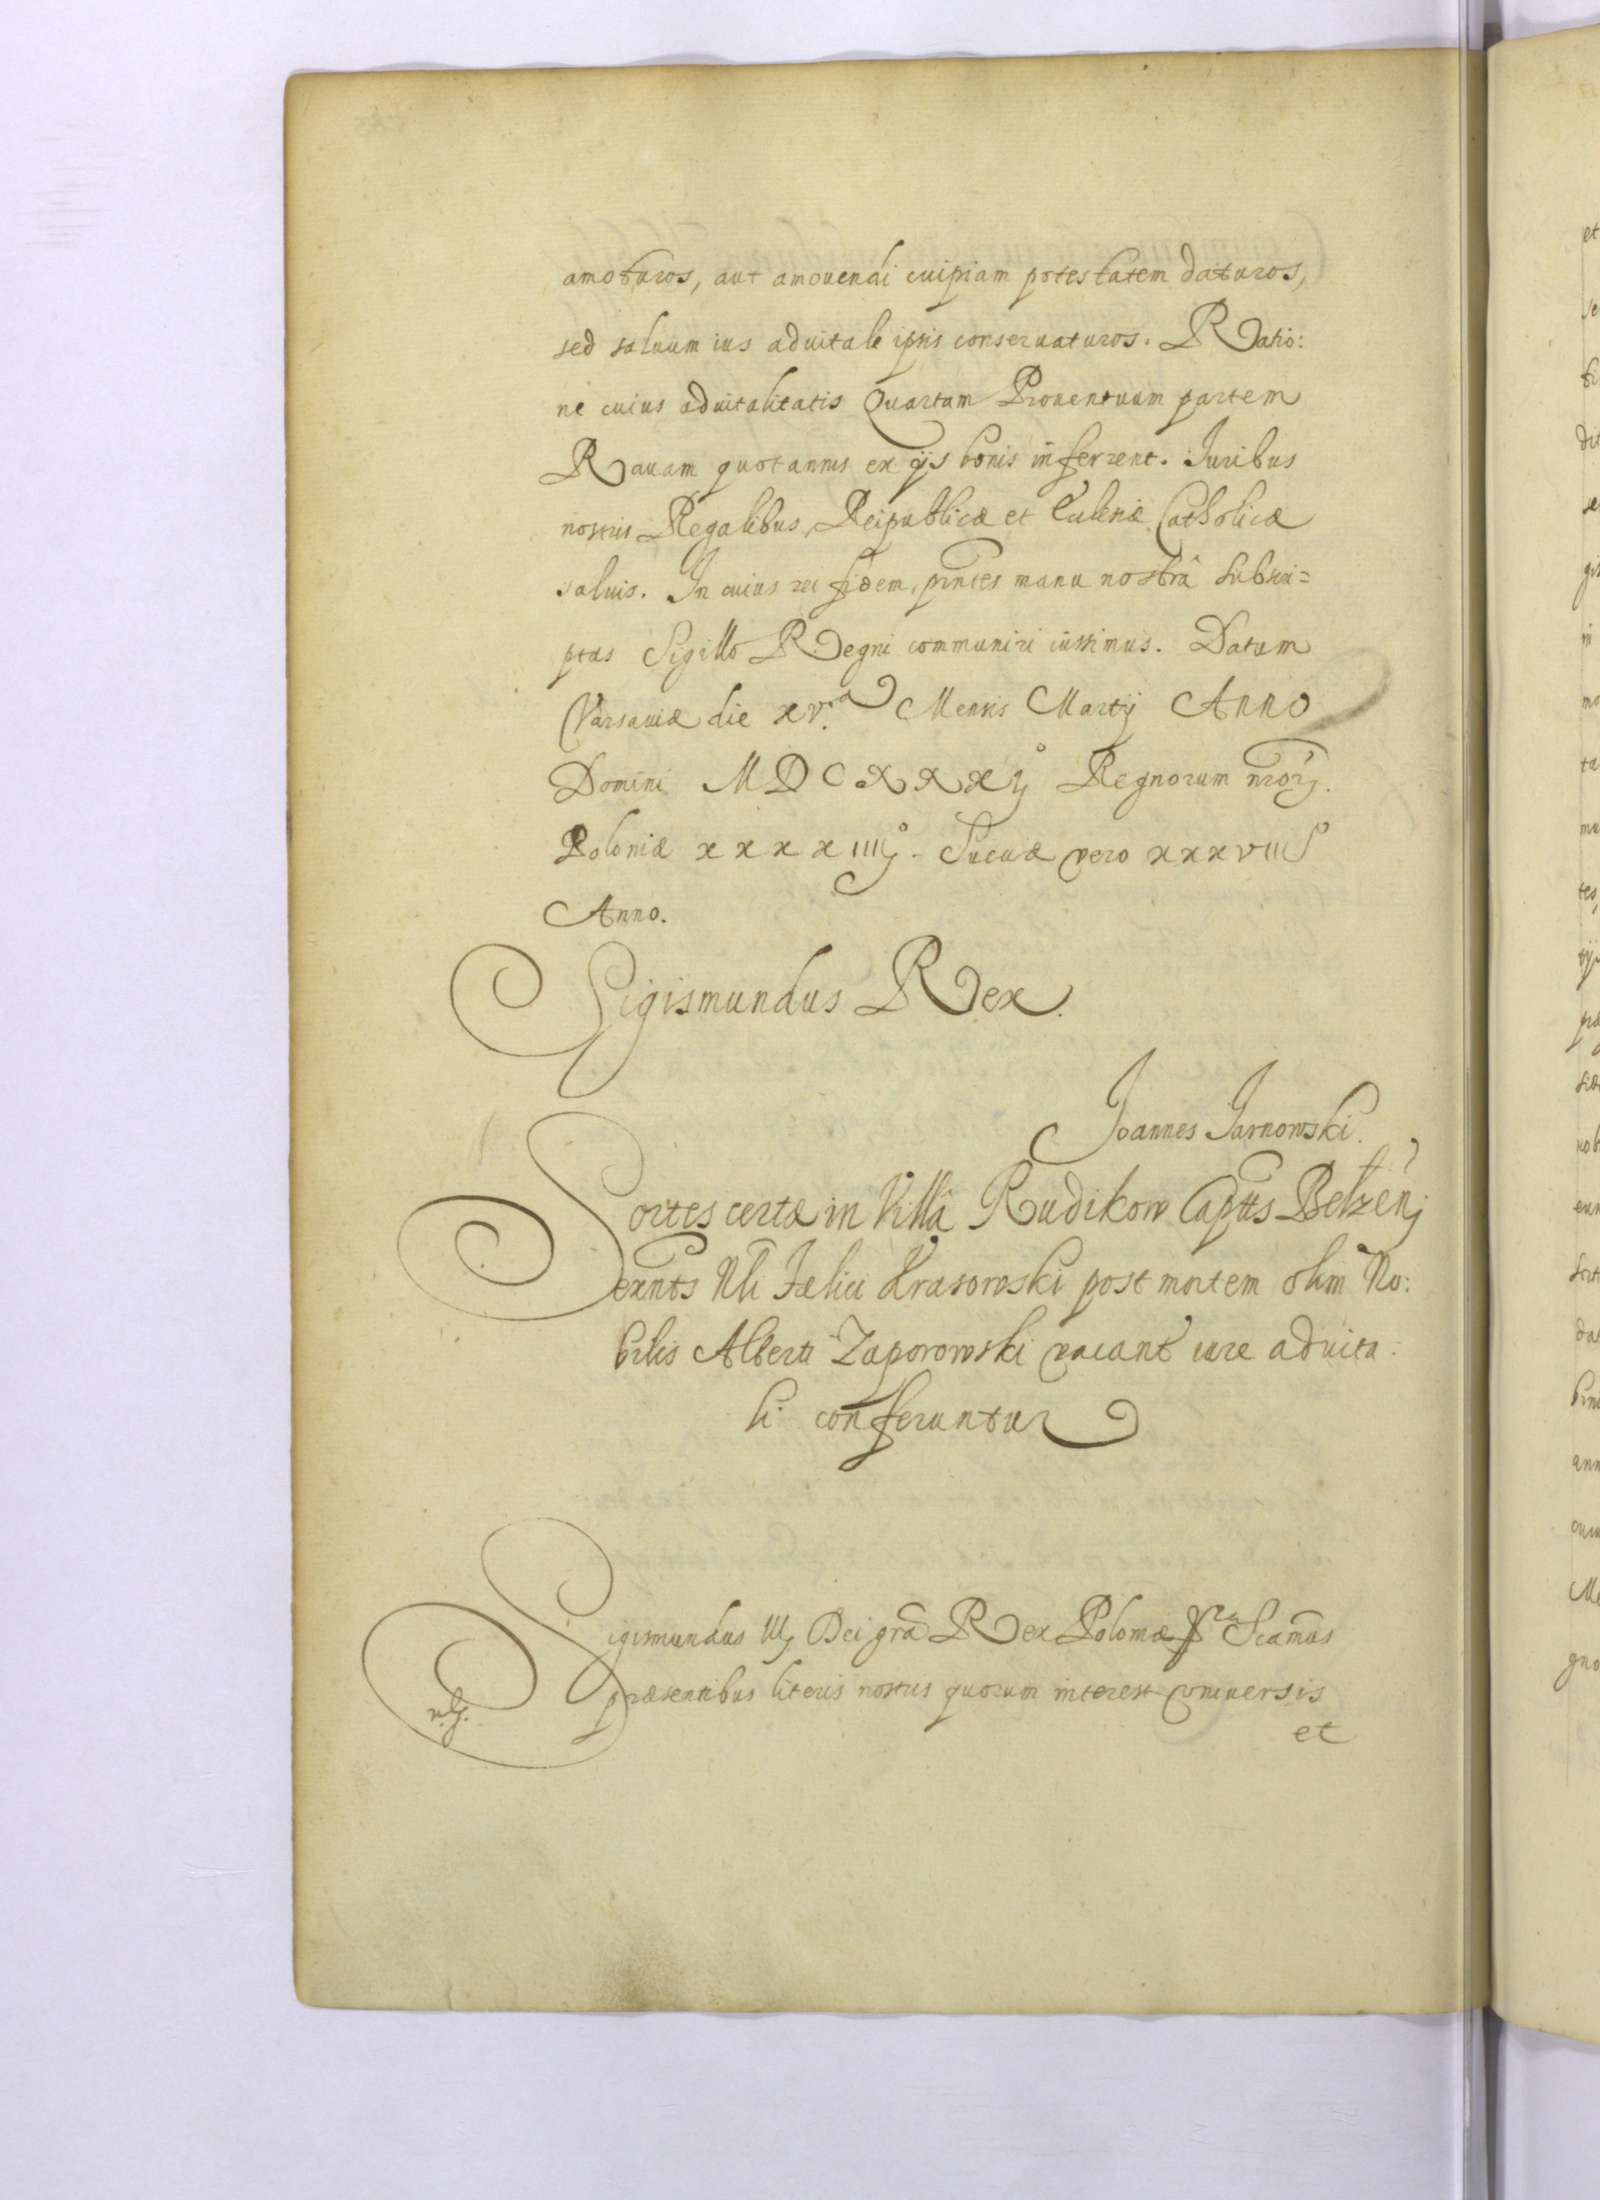 amoturos, aut amouendi cuipiam potestatem daturos,
sed saluum ius aduitale ipsis conseruaturos. Ratio:
ne cuius aduitalitatis Quartam Prouentuum partem
Rauam quotannis ex ijs bonis inferrent. Iuribus
nostris Regalibus, Reipublicæ et Eclesiæ Catholicæ
saluis. In cuius rei fidem, pñtes manu nostrâ subscri=
ptas Sigillo Regni communiri iussimus. Datum
Varsauiæ die xv.ª Mensis Martij Anno
Domini MDCXXXIJ° Regnorum nrõr.
Poloniæ xxxxiiiij° Sueciæ vero xxxviii
Anno.
Sigismundus Rex.
Joannes Jarnowski.
Sortes certæ in Villâ Rudikow Capttûs Belzeñ
exñts Nli Fælici Krasowski post mortem olim No:
bilis Alberti Zaporowski vacant iure aduita:
li conferuntur
Sigismundus III Dei grã Rex Poloniæ Sccamus
præsentibus literis nostris quorum interest vniuersis
et